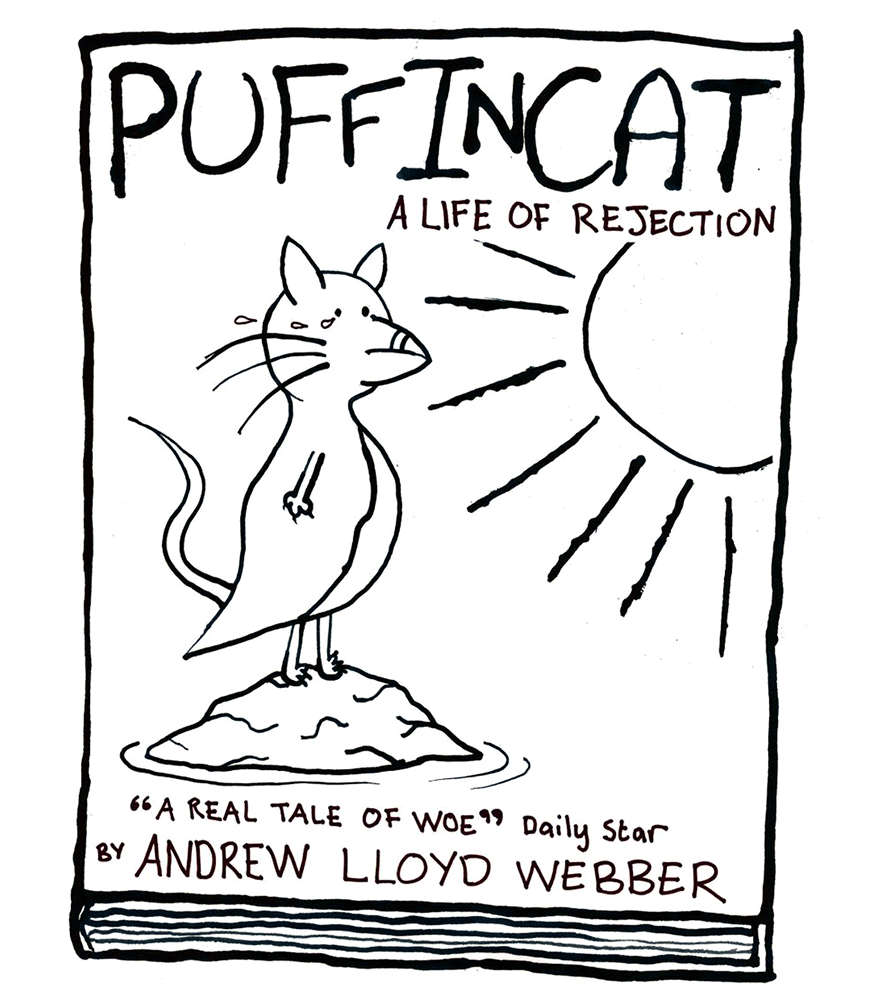 PUFFINCAT
A LIFE OF REJECTION
“A REAL TALE OF WOE” Daily Star
BY ANDREW LLOYD WEBBER